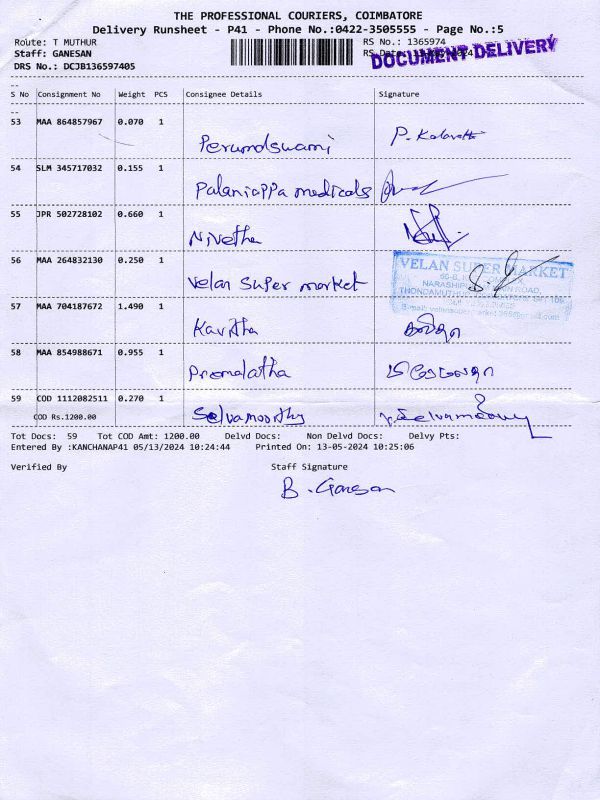 THE PROFESSIONAL COURIERS, COIMBATORE
Delivery Runsheet - P41 - Phone No.:0422-3505555 - Page No.:5
Route: T MUTHUR
RS No.: 1365974
Staff: GANESAN
RS Date:
DOCUMENT DELIVERY
DRS No.: DCJB136597405
S No Consignment No Weight PCS Consignee Details Signature
53 MAA 864857967 0.070 1
Perumalswami P. Kalavathi
54 SLM 345717032 0.155 1
Palaniappa medicals
55 JPR 502728102 0.660 1
Nivetha
56 MAA 264832130 0.250 1
Velan Super market
VELAN SUPER MARKET
57 MAA 704187672 1.490 1
Kavitha கவிதா
58 MAA 854988671 0.955 1
Premalatha பிரேமலதா
59 COD 1112082511 0.270 1
Selvamoorthy
COD Rs.1200.00
Tot Docs: 59 Tot COD Amt: 1200.00 Delvd Docs: Non Delvd Docs: Delvy Pts:
Entered By :KANCHANAP41 05/13/2024 10:24:44 Printed On: 13-05-2024 10:25:06
Verified By Staff Signature
B. Ganesan